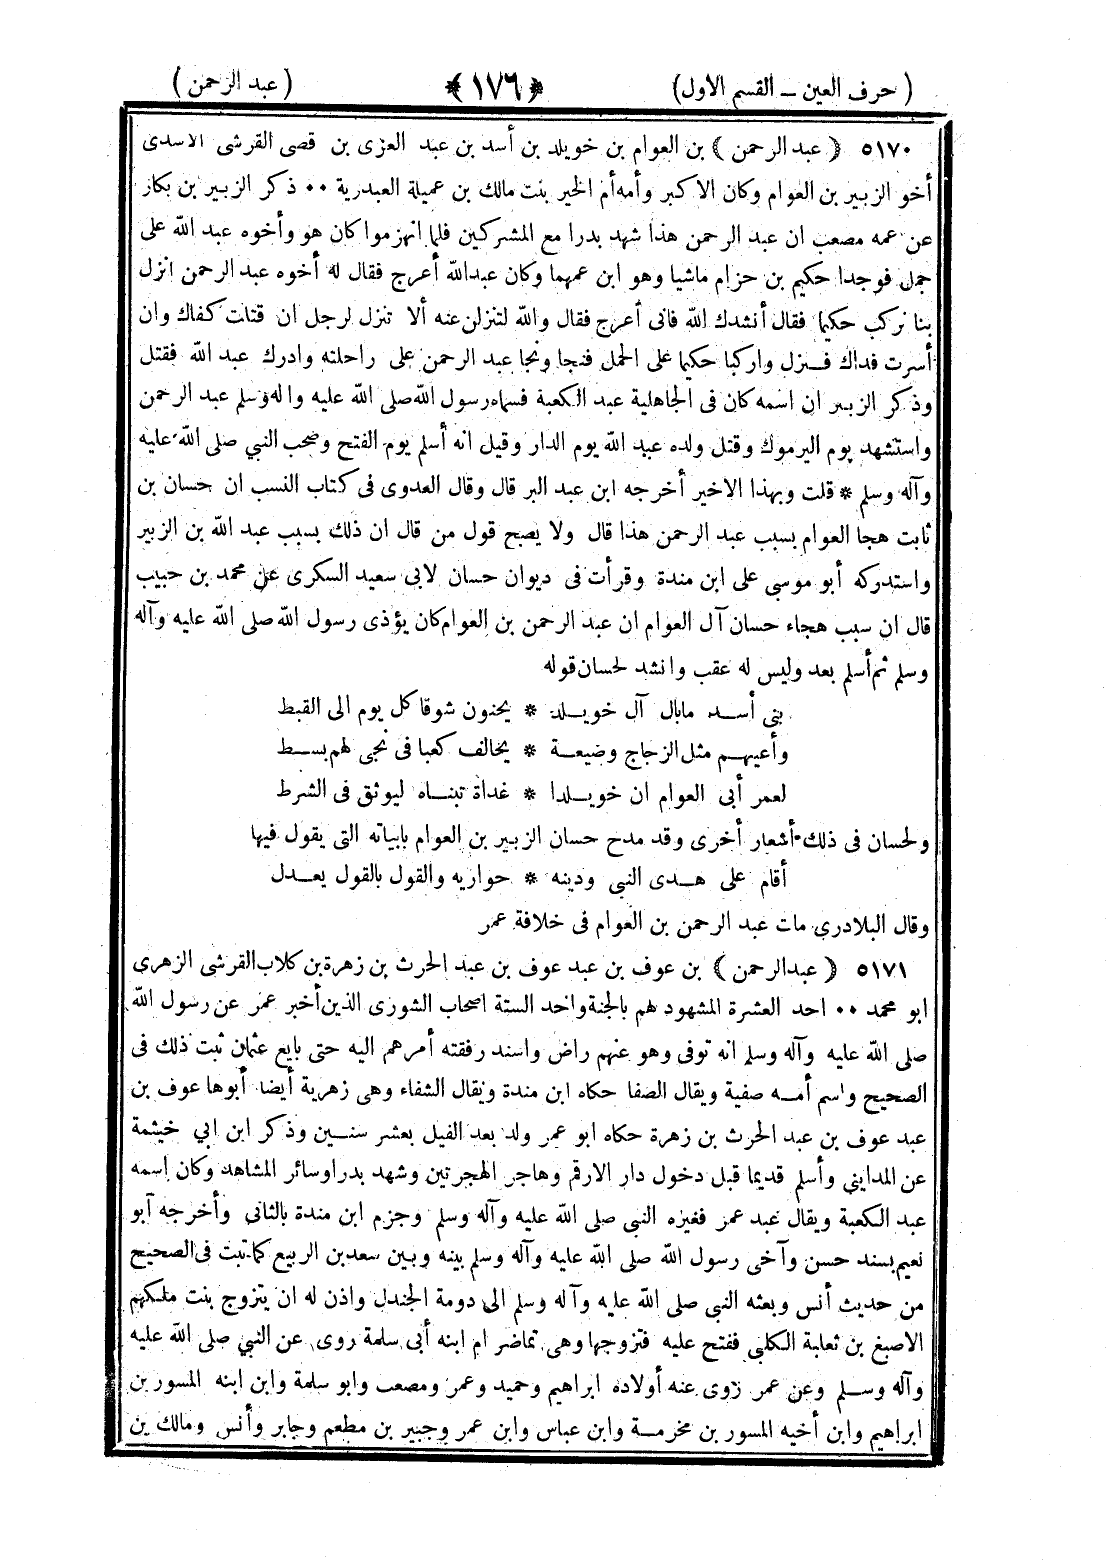 ( حرف العين ــ القسم الاول) ﴿١٧٦﴾ ( عبد الرحمن )
٥١٧٠ ﴿ عبد الرحمن ﴾ بن العوام بن خويلد بن أسد بن عبد العزى بن قصى القرشى الاسدى
أخو الزبير بن العوام وكان الاكبر وأمه أم الخير بنت مالك بن عميلة العبدرية ٠٠ ذكر الزبير بن بكار
عن عمه مصعب ان عبد الرحمن هذا شهد بدرا مع المشركين فلما انهزموا كان هو وأخوه عبد الله على
جمل فوجدا حكيم بن حزام ماشيا وهو ابن عمهما وكان عبدالله أعرج فقال له أخوه عبد الرحمن انزل
بنا نركب حكيما فقال أنشدك الله فانى أعرج فقال والله لتنزلن عنه ألا تنزل لرجل ان قتلت كفاك وان
أسرت فداك فنزل واركبا حكيما على الجمل فنجا ونجا عبد الرحمن على راحلته وادرك عبد الله فقتل
وذكر الزبير ان اسمه كان فى الجاهلية عبد الكعبة فسماه رسول الله صلى الله عليه واله وسلم عبد الرحمن
واستشهد يوم اليرموك وقتل ولده عبد الله يوم الدار وقيل انه أسلم يوم الفتح وصحب النبي صلى الله عليه
وآله وسلم * قلت وبهذا الاخير أخرجه ابن عبد البر قال وقال العدوى فى كتاب النسب ان حسان بن
ثابت هجا العوام بسبب عبد الرحمن هذا قال ولا يصح قول من قال ان ذلك بسبب عبد الله بن الزبير
واستدركه أبو موسى على ابن مندة وقرأت فى ديوان حسان لابى سعيد السكرى عن محمد بن حبيب
قال ان سبب هجاء حسان آل العوام ان عبد الرحمن بن العوام كان يؤذى رسول الله صلى الله عليه وآله
وسلم ثم أسلم بعد وليس له عقب وانشد لحسان قوله
بنى أسد مابال آل خويلد * يحنون شوقا كل يوم الى القبط
وأعينهم مثل الزجاج وضيعة * يخالف كعبا فى لحى لهم بسط
لعمر أبى العوام ان خويلدا * غداة تبناه ليوثق فى الشرط
ولحسان فى ذلك أشعار أخرى وقد مدح حسان الزبير بن العوام بابياته التى يقول فيها
أقام على هدى النبي ودينه * حواريه والقول بالقول يعدل
وقال البلادرى مات عبد الرحمن بن العوام فى خلافة عمر
٥١٧١ ﴿ عبدالرحمن ﴾ بن عوف بن عبد عوف بن عبد الحرث بن زهرة بن كلاب القرشى الزهرى
ابو محمد ٠٠ احد العشرة المشهود لهم بالجنة واحد الستة اصحاب الشورى الذين أخبر عمر عن رسول الله
صلى الله عليه وآله وسلم انه توفى وهو عنهم راض واسند رفقته أمرهم اليه حتى بايع عثمان ثبت ذلك فى
الصحيح واسم أمه صفية ويقال الصفا حكاه ابن مندة ويقال الشفاء وهى زهرية أيضا أبوها عوف بن
عبد عوف بن عبد الحرث بن زهرة حكاه ابو عمر ولد بعد الفيل بعشر سنين وذكر ابن ابي خيثمة
عن المدايني وأسلم قديما قبل دخول دار الارقم وهاجر الهجرتين وشهد بدرا وسائر المشاهد وكان إسمه
عبد الكعبة ويقال عبد عمر فغيره النبي صلى الله عليه وآله وسلم وجزم ابن مندة بالثانى وأخرجه أبو
نعيم بسند حسن وآخى رسول الله صلى الله عليه وآله وسلم بينه وبين سعد بن الربيع كما ثبت فى الصحيح
من حديث أنس وبعثه النبي صلى الله عليه وآله وسلم الى دومة الجندل واذن له ان يتزوج بنت ملكهم
الاصبغ بن ثعلبة الكلبى ففتح عليه فتزوجها وهى تماضر ام ابنه أبى سلمة روى عن النبي صلى الله عليه
وآله وسلم وعن عمر روى عنه أولاده ابراهيم وحميد وعمر ومصعب وابو سلمة وابن ابنه المسور بن
ابراهيم وابن أخيه المسور بن مخرمة وابن عباس وابن عمر وجبير بن مطعم وجابر وأنس ومالك بن